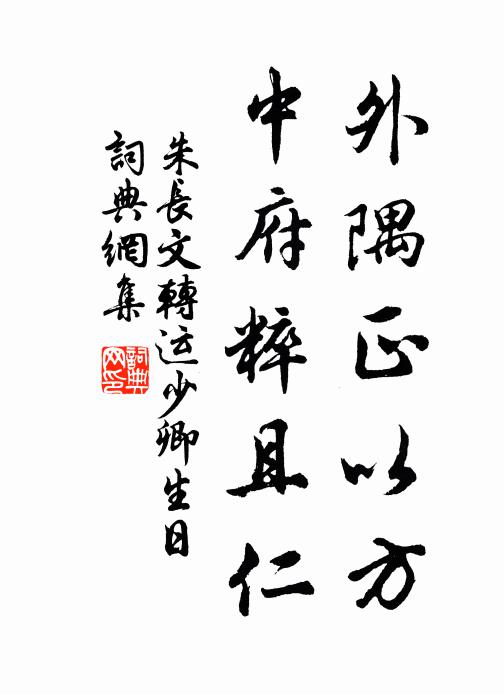 外隅正以方
中府粹且仁
朱長文轉运少卿生日
詞典網集
詞典网印